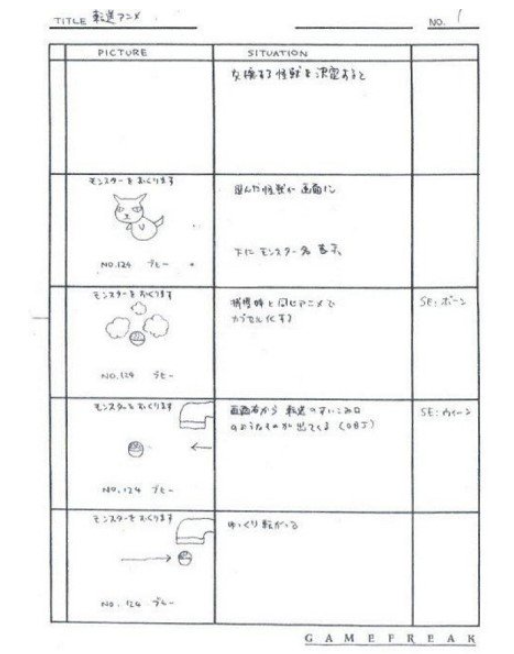 TITLE 転送アニメ
NO. 1
PICTURE
SITUATION
交換する怪獣を決定すると
モンスターを おくります
選んだ怪獣が 画面に
下に モンスター名 表示。
NO.124 ブヒー
モンスターを おくります
捕獲時と同じアニメで
カプセル化する
SE:ボーン
NO.124 ブヒー
モンスターを おくります
画面右から 転送のすいこみ口
のようなものが出てくる (OBJ)
SE:ウィーン
NO.124 ブヒー
モンスターを おくります
ゆっくり転がる
NO.124 ブヒー
GAMEFREAK